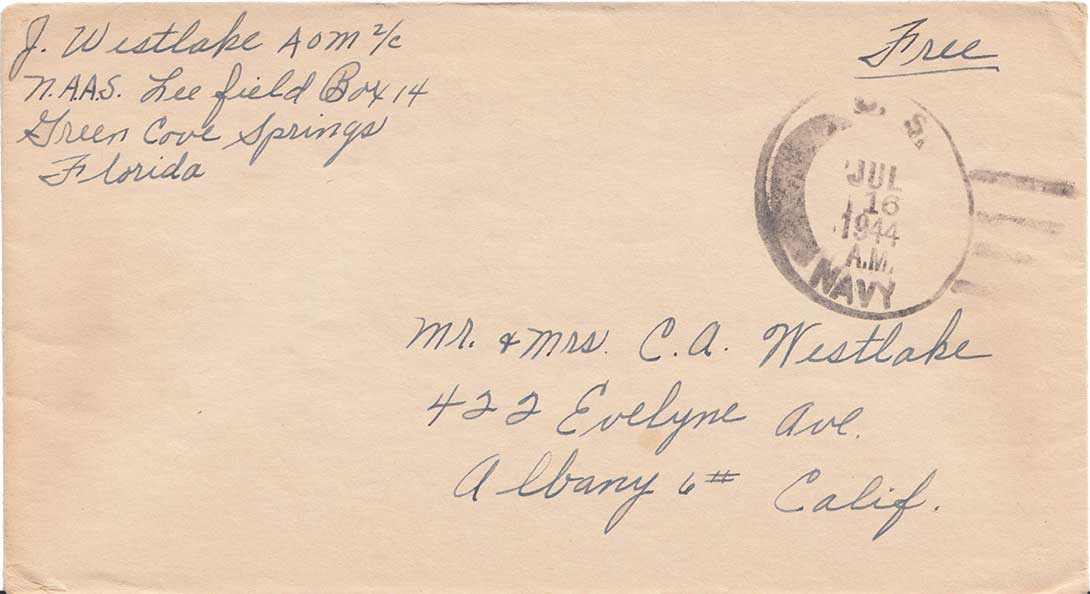 J. Westlake AOM 2/c
N.A.A.S. Lee field Box 14
Green Cove Springs
Florida
Free
U. S.
JUL
16
1944
A.M.
NAVY
Mr. & Mrs. C. A. Westlake
422 Evelyne Ave.
Albany 6# Calif.